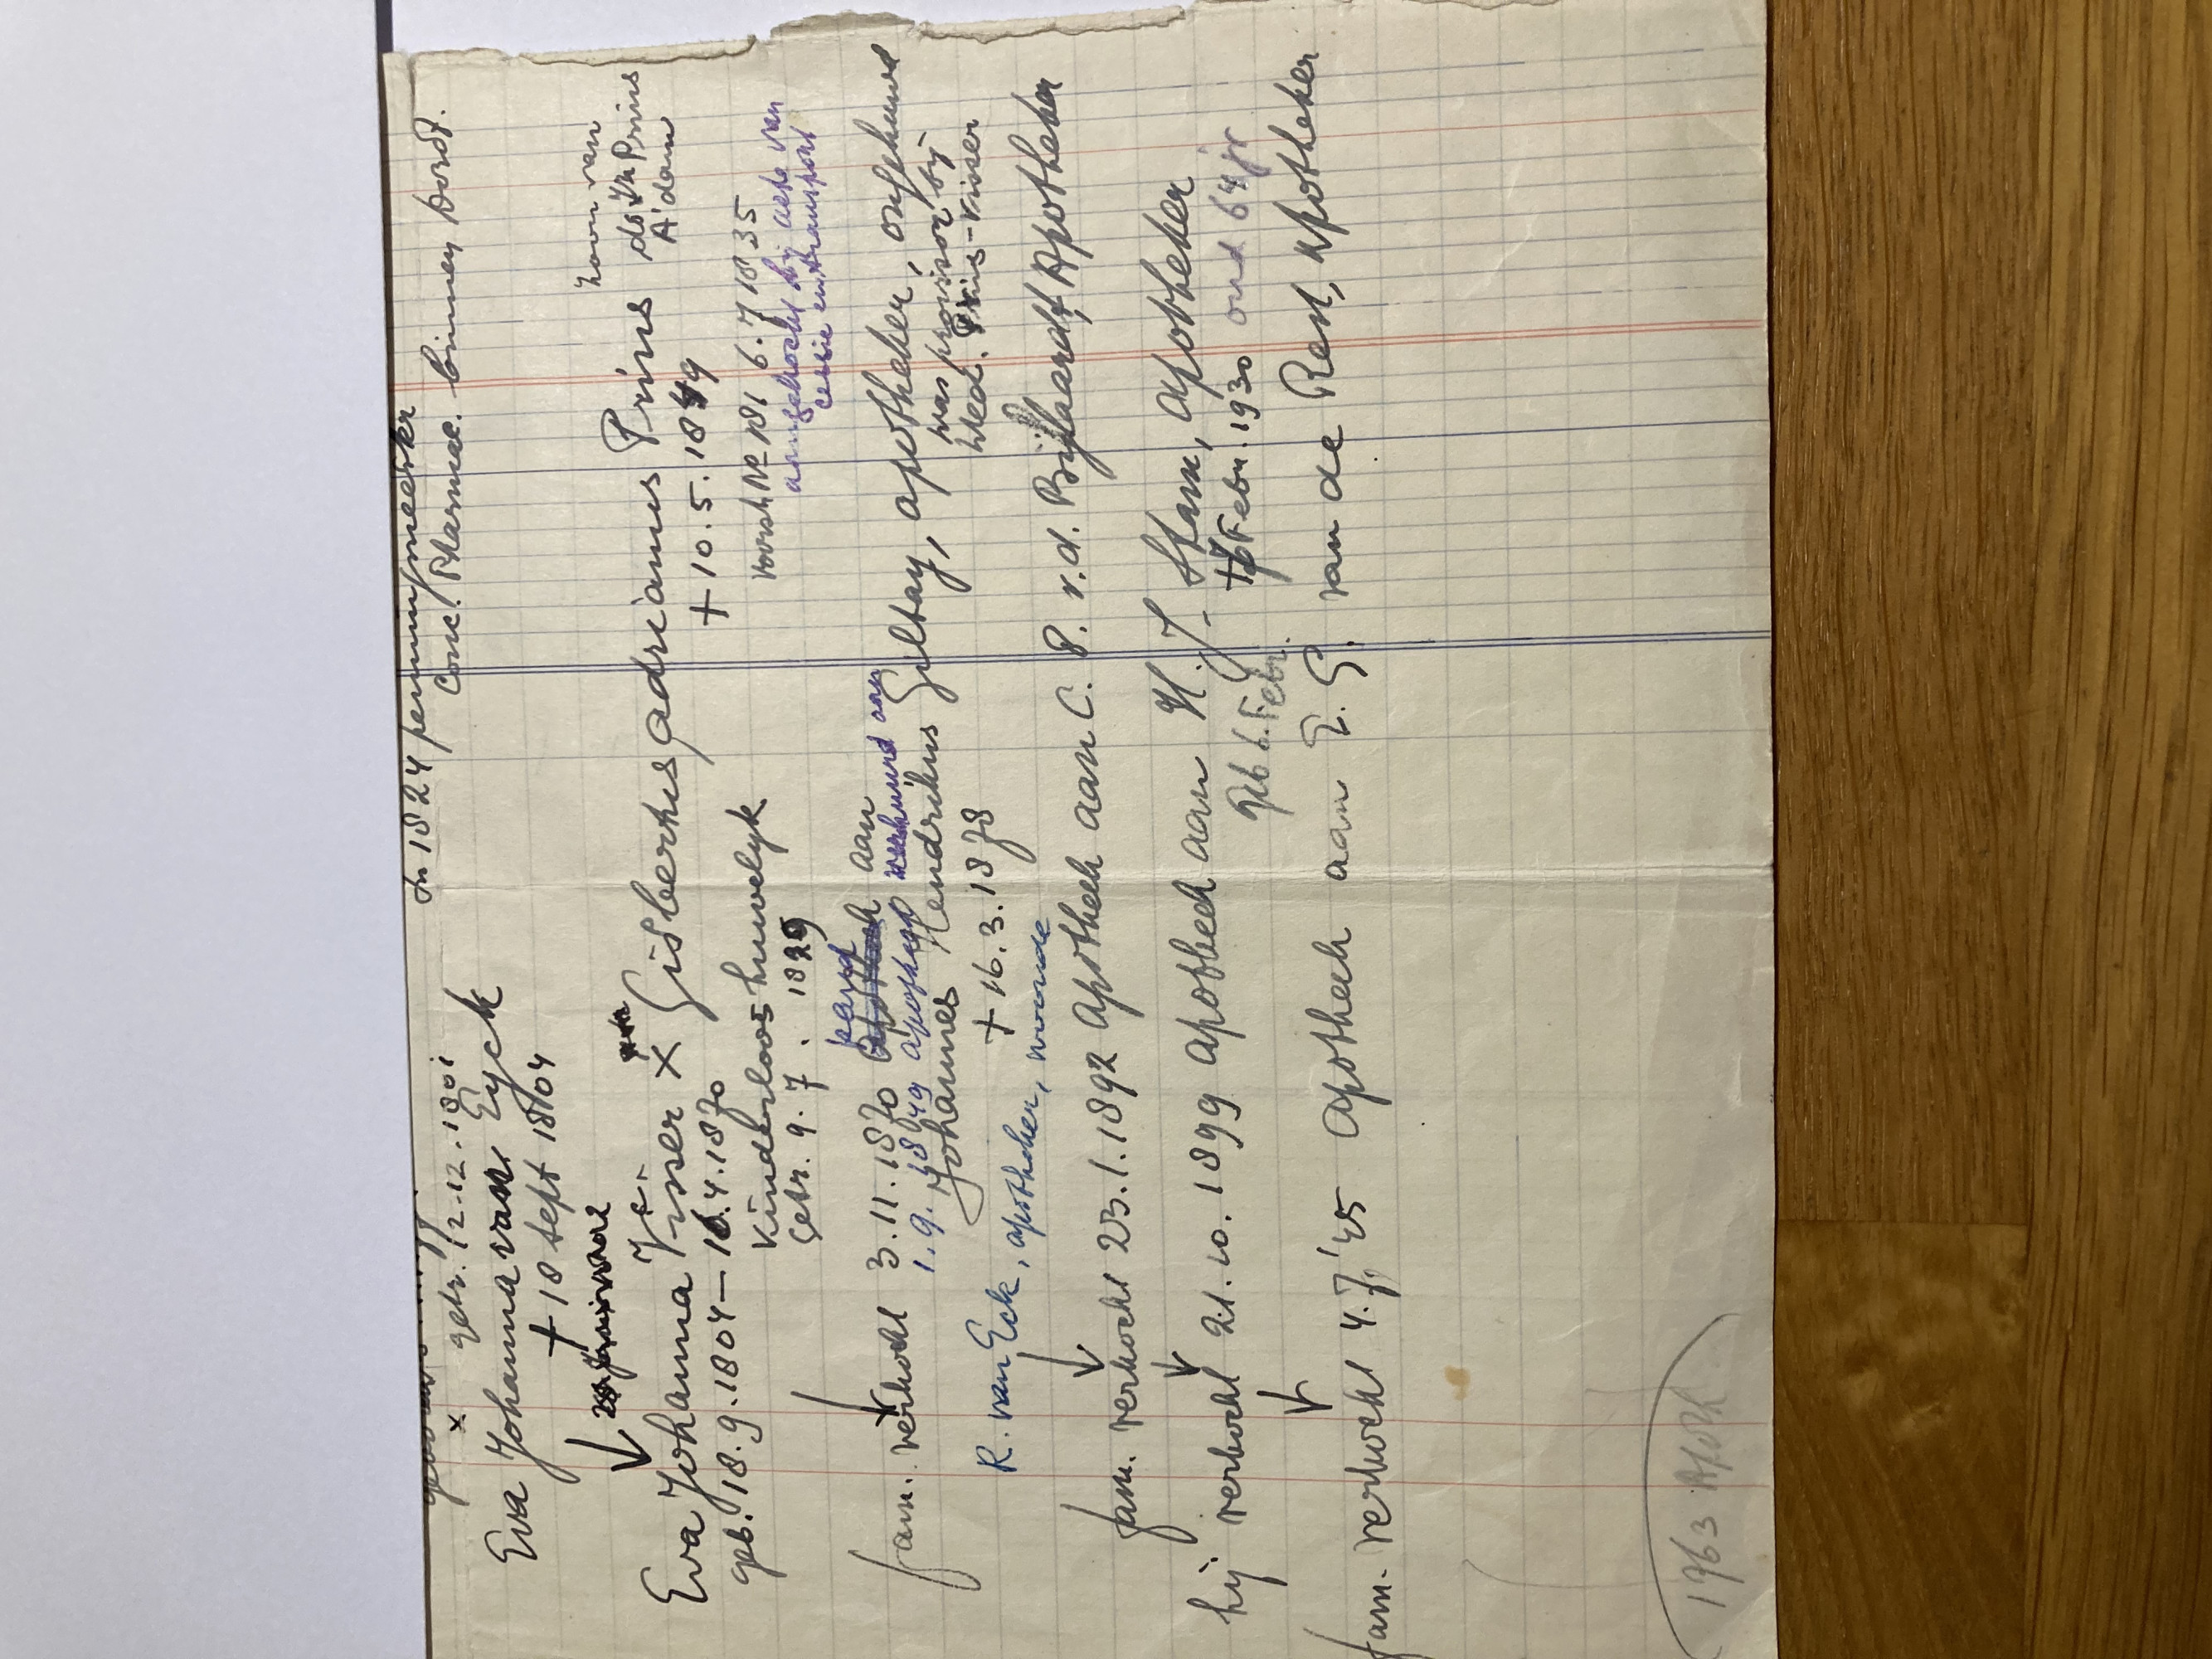 In 1824 penningmeester
Comc. Pharmac. binnen Dordt.
x getr. 12.12.1801
Eva Johanna van Eyck
+ 18 sept 1804
zoon van
ds Prins
A'dam
Eva Johanna Visser x Gisbertus Adrianus Prins
geb. 18.9.1804 – 16.4.1870
+ 10.5.1849
Kinderloos huwelyk
Voorstr. No 181 6.7 1835
aangekocht bij acte van
cessie en transport
Getr. 9.7.1829
fam. verkocht 3.11.1870 pand aan
1.9.1849 apotheek verhuurd aan
Johannes Hendrikus Giltay, apotheker, ongehuwd
+ 16.3.1878
was provisor bij
Wed. Prins-Visser
R. van Eck, apotheker, woonde
fam. verkocht 23.1.1892 apotheek aan C. P. v.d. Bijllaardt, Apotheker
hij verkocht 21.10.1899 apotheek aan H. J. Stam, apotheker
geb 6. Febr.
+ Febr. 1930 oud 64 jr
fam. verkocht 4.7,'25 apotheek aan van de Rest, apotheker
1963 Apoth